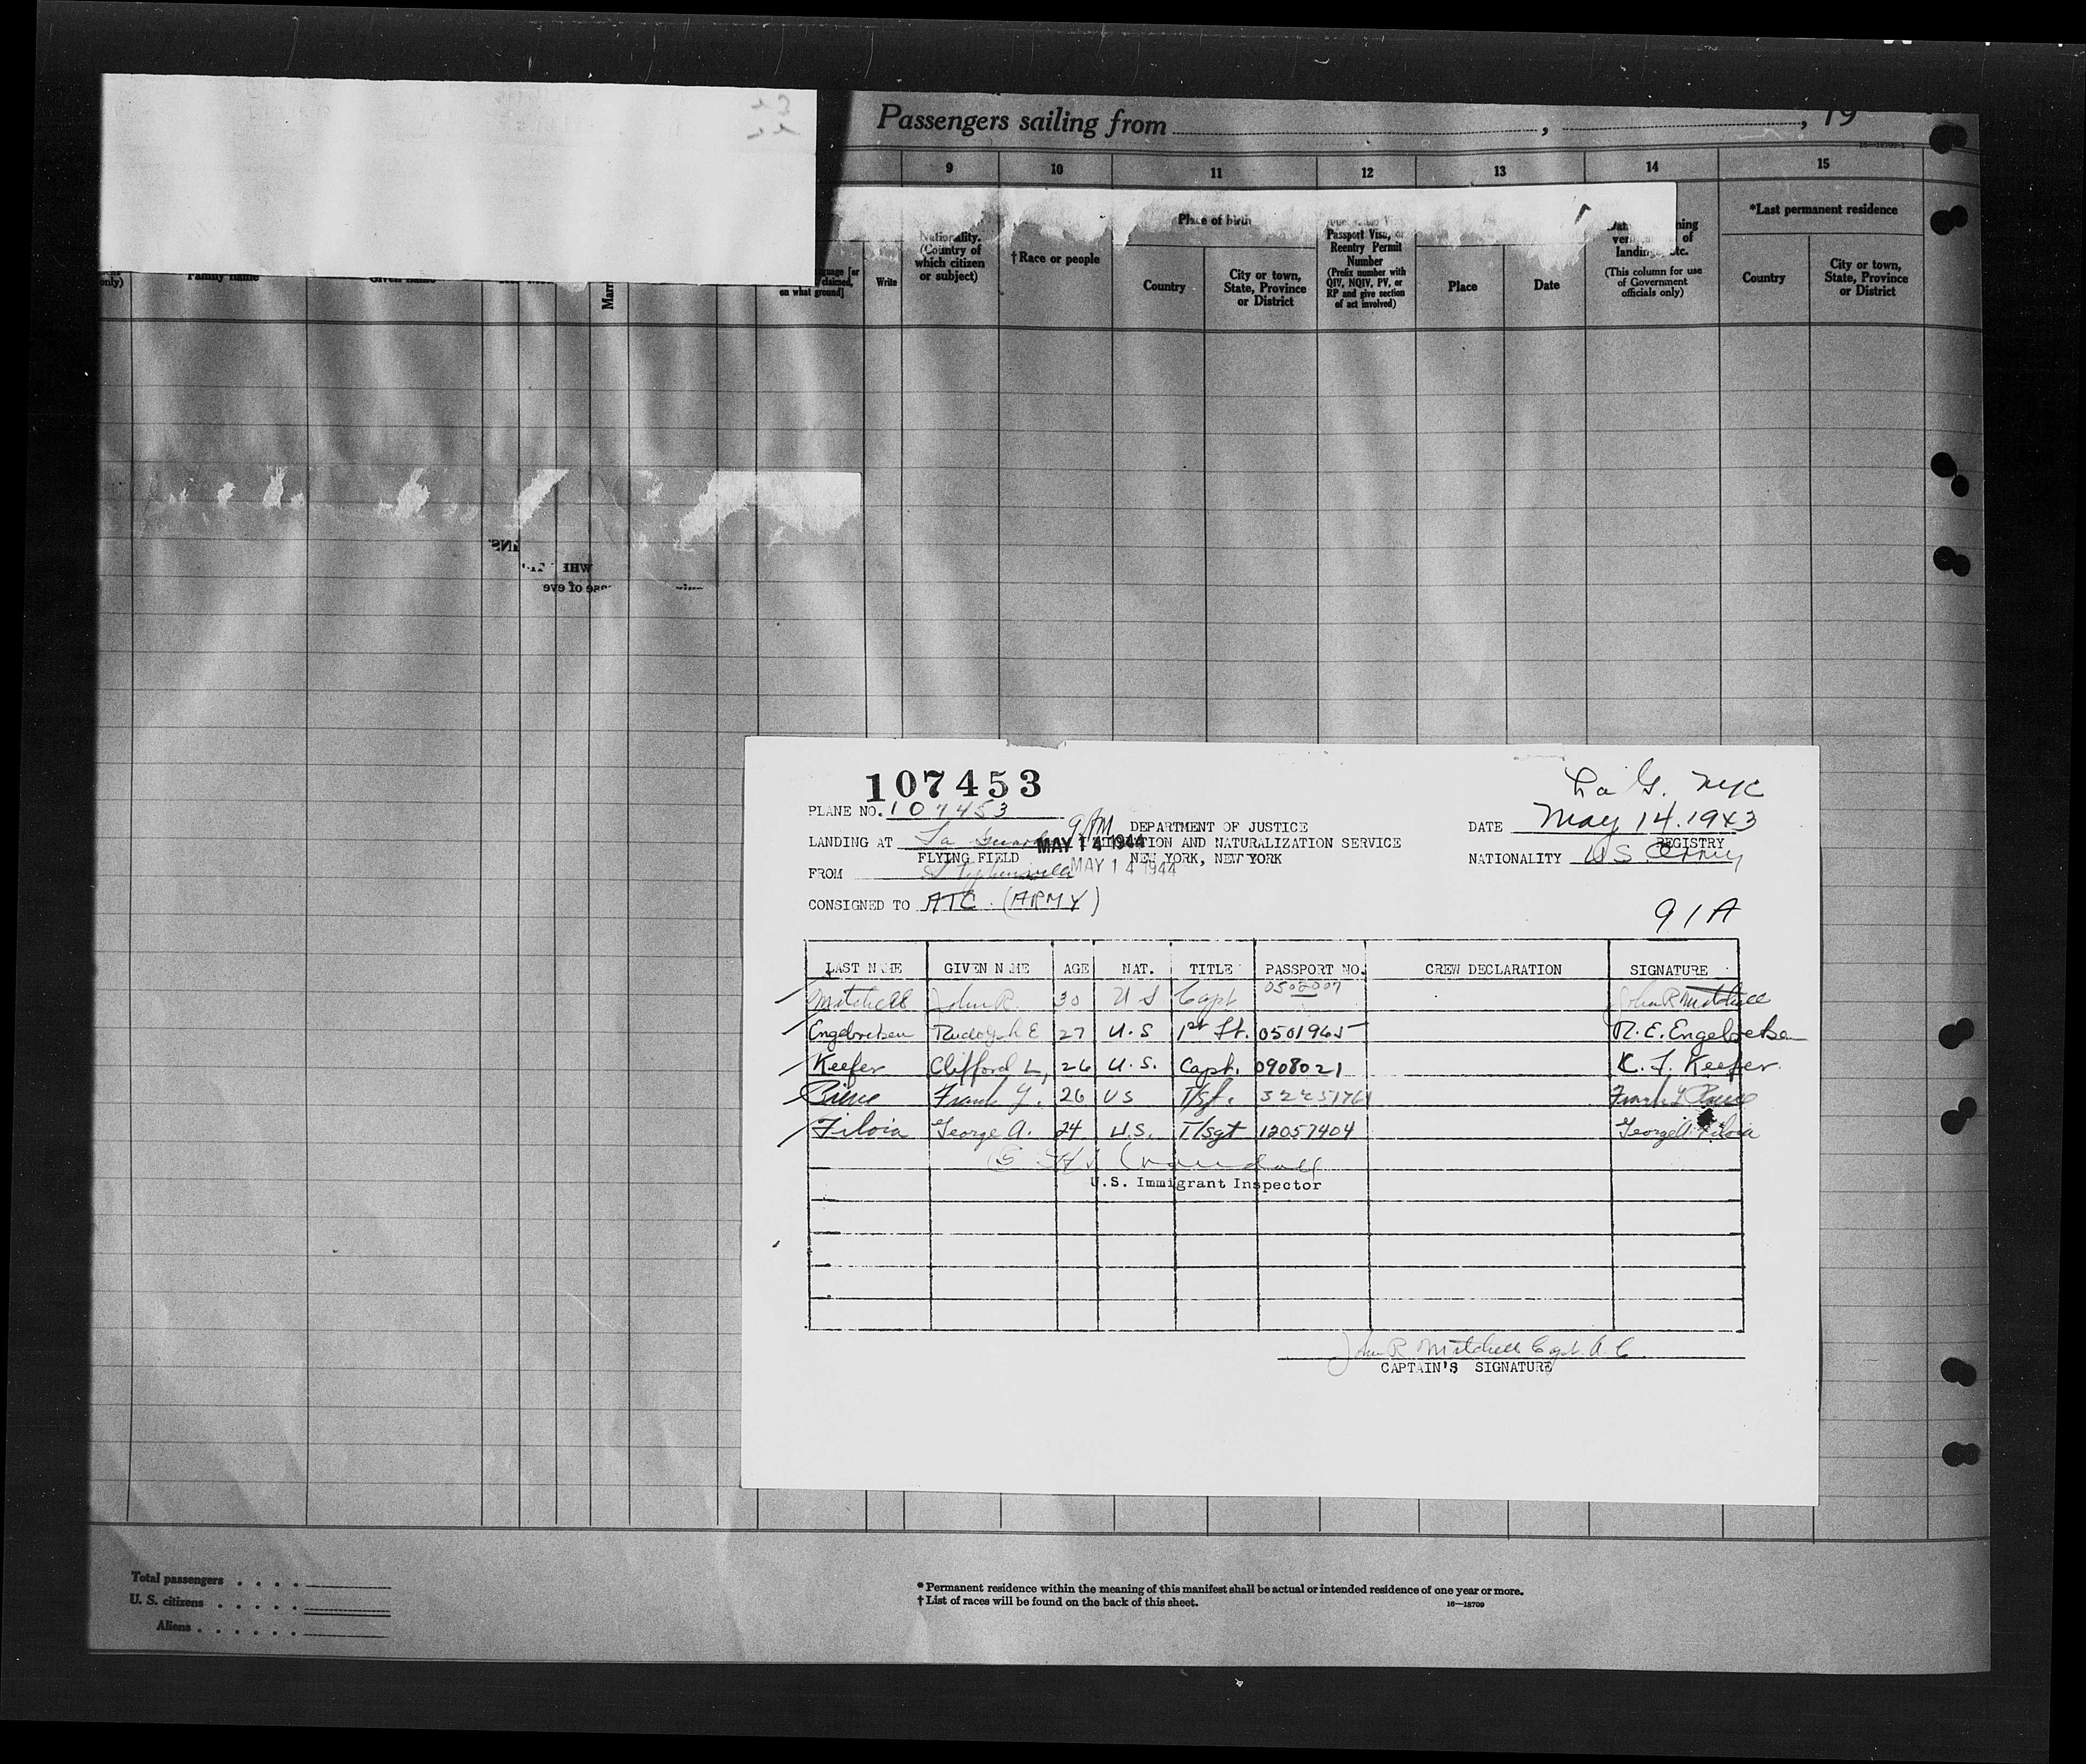 Passengers sailing from , , 19
16—18709-1
9 10 11 12 13 14 15
Place of birth
*Last permanent residence
Nationality. (Country of which citizen or subject)
†Race or people
Country
City or town, State, Province or District
Passport Visa, or Reentry Permit Number (Prefix number with QIV, NQIV, PV, or RP and give section of act involved)
Place
Date
landing, etc. (This column for use of Government officials only)
Country
City or town, State, Province or District
only) Family name Given name on what ground] Write
107453
La G. NYC
PLANE NO. 107453
9 AM
DEPARTMENT OF JUSTICE
DATE May 14. 1943
LANDING AT La Guardia MAY 14 1944 IMMIGRATION AND NATURALIZATION SERVICE
REGISTRY
FLYING FIELD
NEW YORK, NEW YORK
NATIONALITY US Army
FROM Stephenville MAY 14 1944
CONSIGNED TO ATC. (ARMY)
91A
LAST NAME GIVEN NAME AGE NAT. TITLE PASSPORT NO. CREW DECLARATION SIGNATURE
Mitchell John R. 30 U S Capt 0502007 John R Mitchell
Engebretsen Rudolph E 27 U.S 1st Lt. 0501965 R. E. Engebretsen
Keefer Clifford L, 26 U.S. Capt. 0908021 C. L. Keefer
Frank J. 26 US T/Sgt. 32251761 Frank J
Filoia George A. 24 U.S. T/sgt 12057404 George A. Filoia
Crandall
U.S. Immigrant Inspector
John R Mitchell Capt. A. C
CAPTAIN'S SIGNATURE
Total passengers . . . .
U. S. citizens . . . . .
Aliens . . . . . .
* Permanent residence within the meaning of this manifest shall be actual or intended residence of one year or more.
† List of races will be found on the back of this sheet.
16—18709